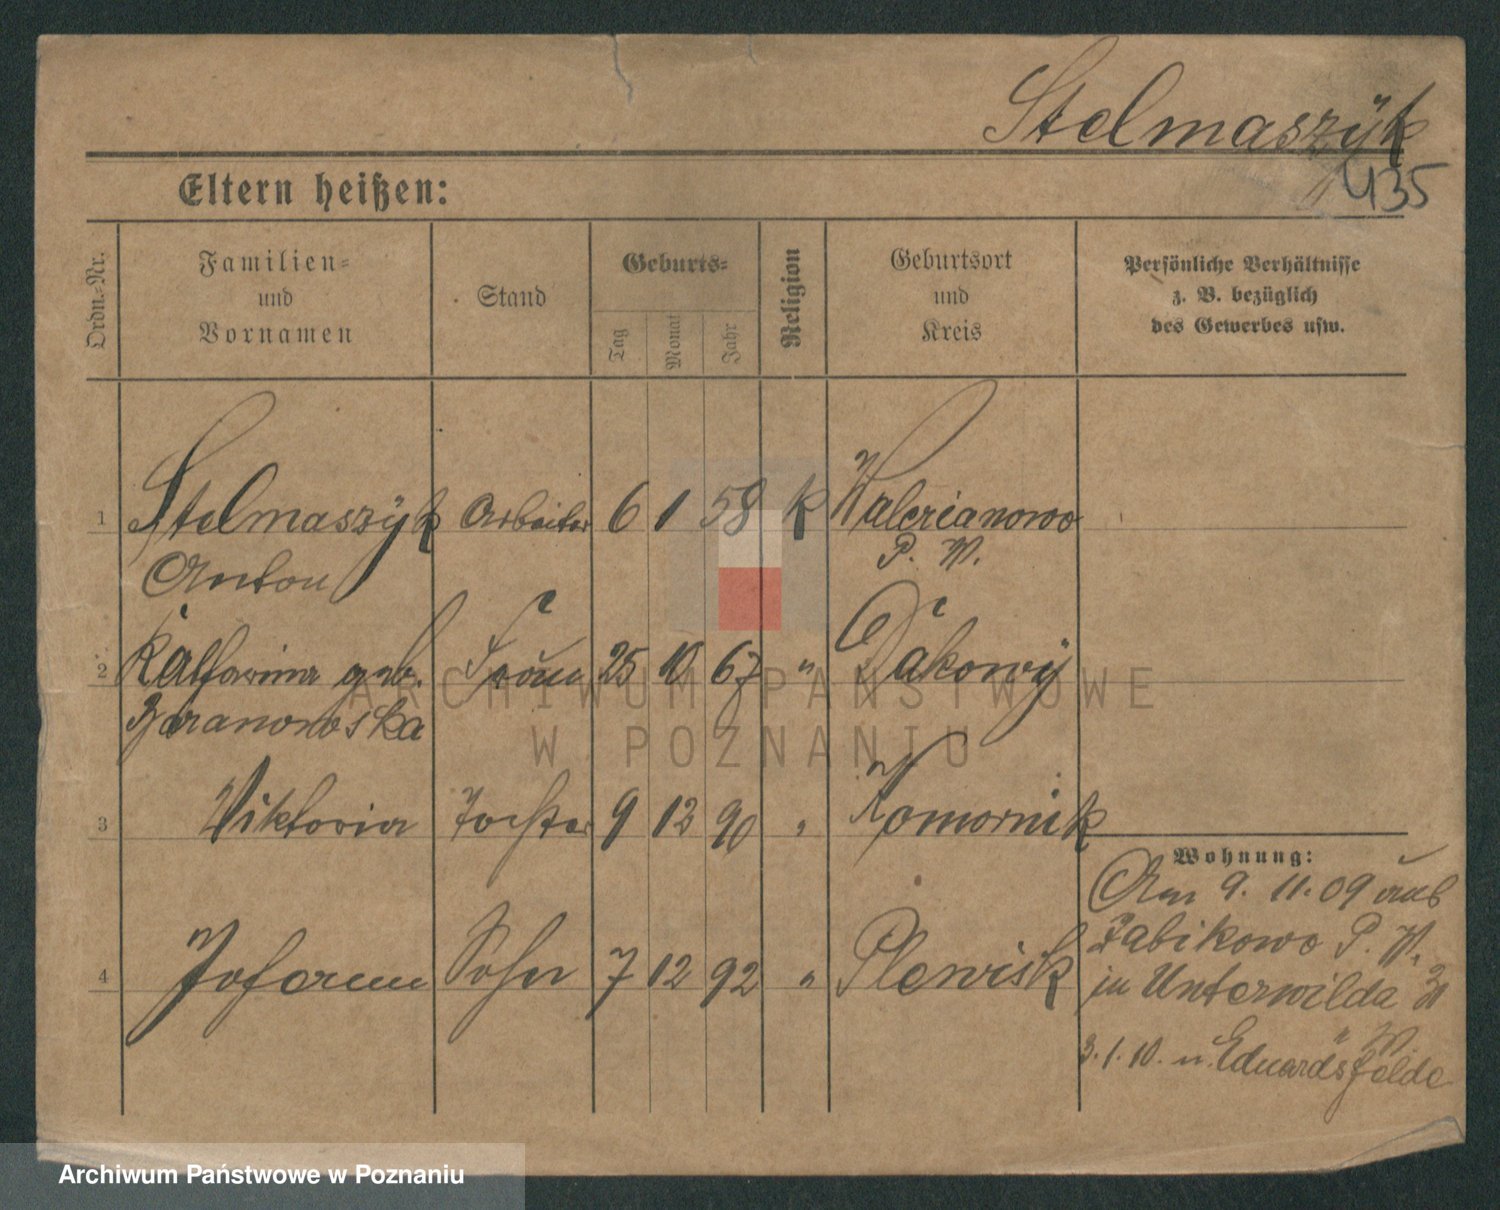 Stelmaszÿk
435
Eltern heißen:
Ordn.-Nr.
Familien-
und
Vornamen
Stand
Geburts-
Tag
Monat
Jahr
Religion
Geburtsort
und
Kreis
Persönliche Verhältnisse
z. B. bezüglich
des Gewerbes usw.
1 Stelmaszÿk Arbeiter 6 1 58 k Walerianowo
Anton P. W.
2 Katharina geb. Frau 25 10 67 " Dakowÿ
Baranowska
3 Viktoria Tochter 9 12 90 " Komornik
4 Johann Sohn 7 12 92 " Plewisk
Wohnung:
Am 9. 11. 09 aus
Zabikowo P. W.
in Unterwilda 31
3. 1. 10. n. Eduardsfelde
ARCHIWUM PAŃSTWOWE
W POZNANIU
Archiwum Państwowe w Poznaniu